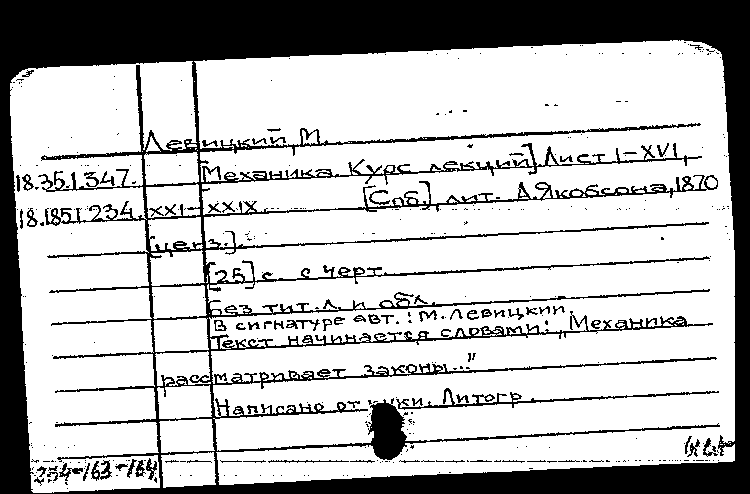 Левицкий, М.
18.35.1.347. [Механика. Курс лекций] Лист I-XVI,
18.185.1.234. XXI-XXIX. [Спб], лит. А. Якобсона, 1870
[ценз.].
[25] с. с черт.
Без тит. л. и обл.
В сигнатуре авт.: М. Левицкий.
Текст начинается словами: „Механика
рассматривает законы..."
Написано от руки. Литогр.
254-163-164